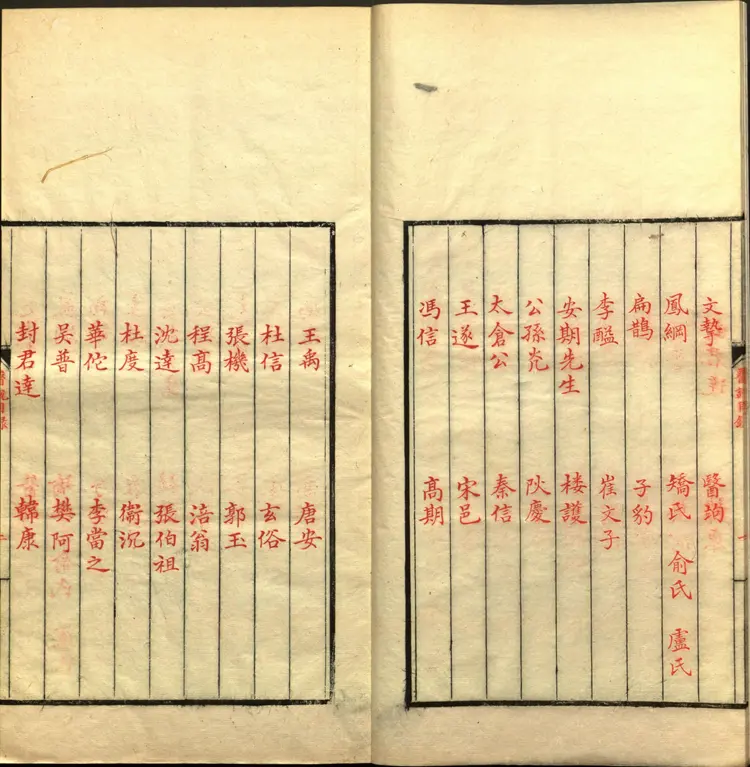 文摯 醫竘
鳳綱 矯氏 俞氏 盧氏
扁鵲 子豹
李醯 崔文子
安期先生 楼護
公孫光 陽慶
太倉公 秦信
王遂 宋邑
馮信 高期
王禹 唐安
杜信 玄俗
張機 郭玉
程高 涪翁
沈達 張伯祖
杜度 衛沉
華佗 李當之
吴普 樊阿
封君達 韓康